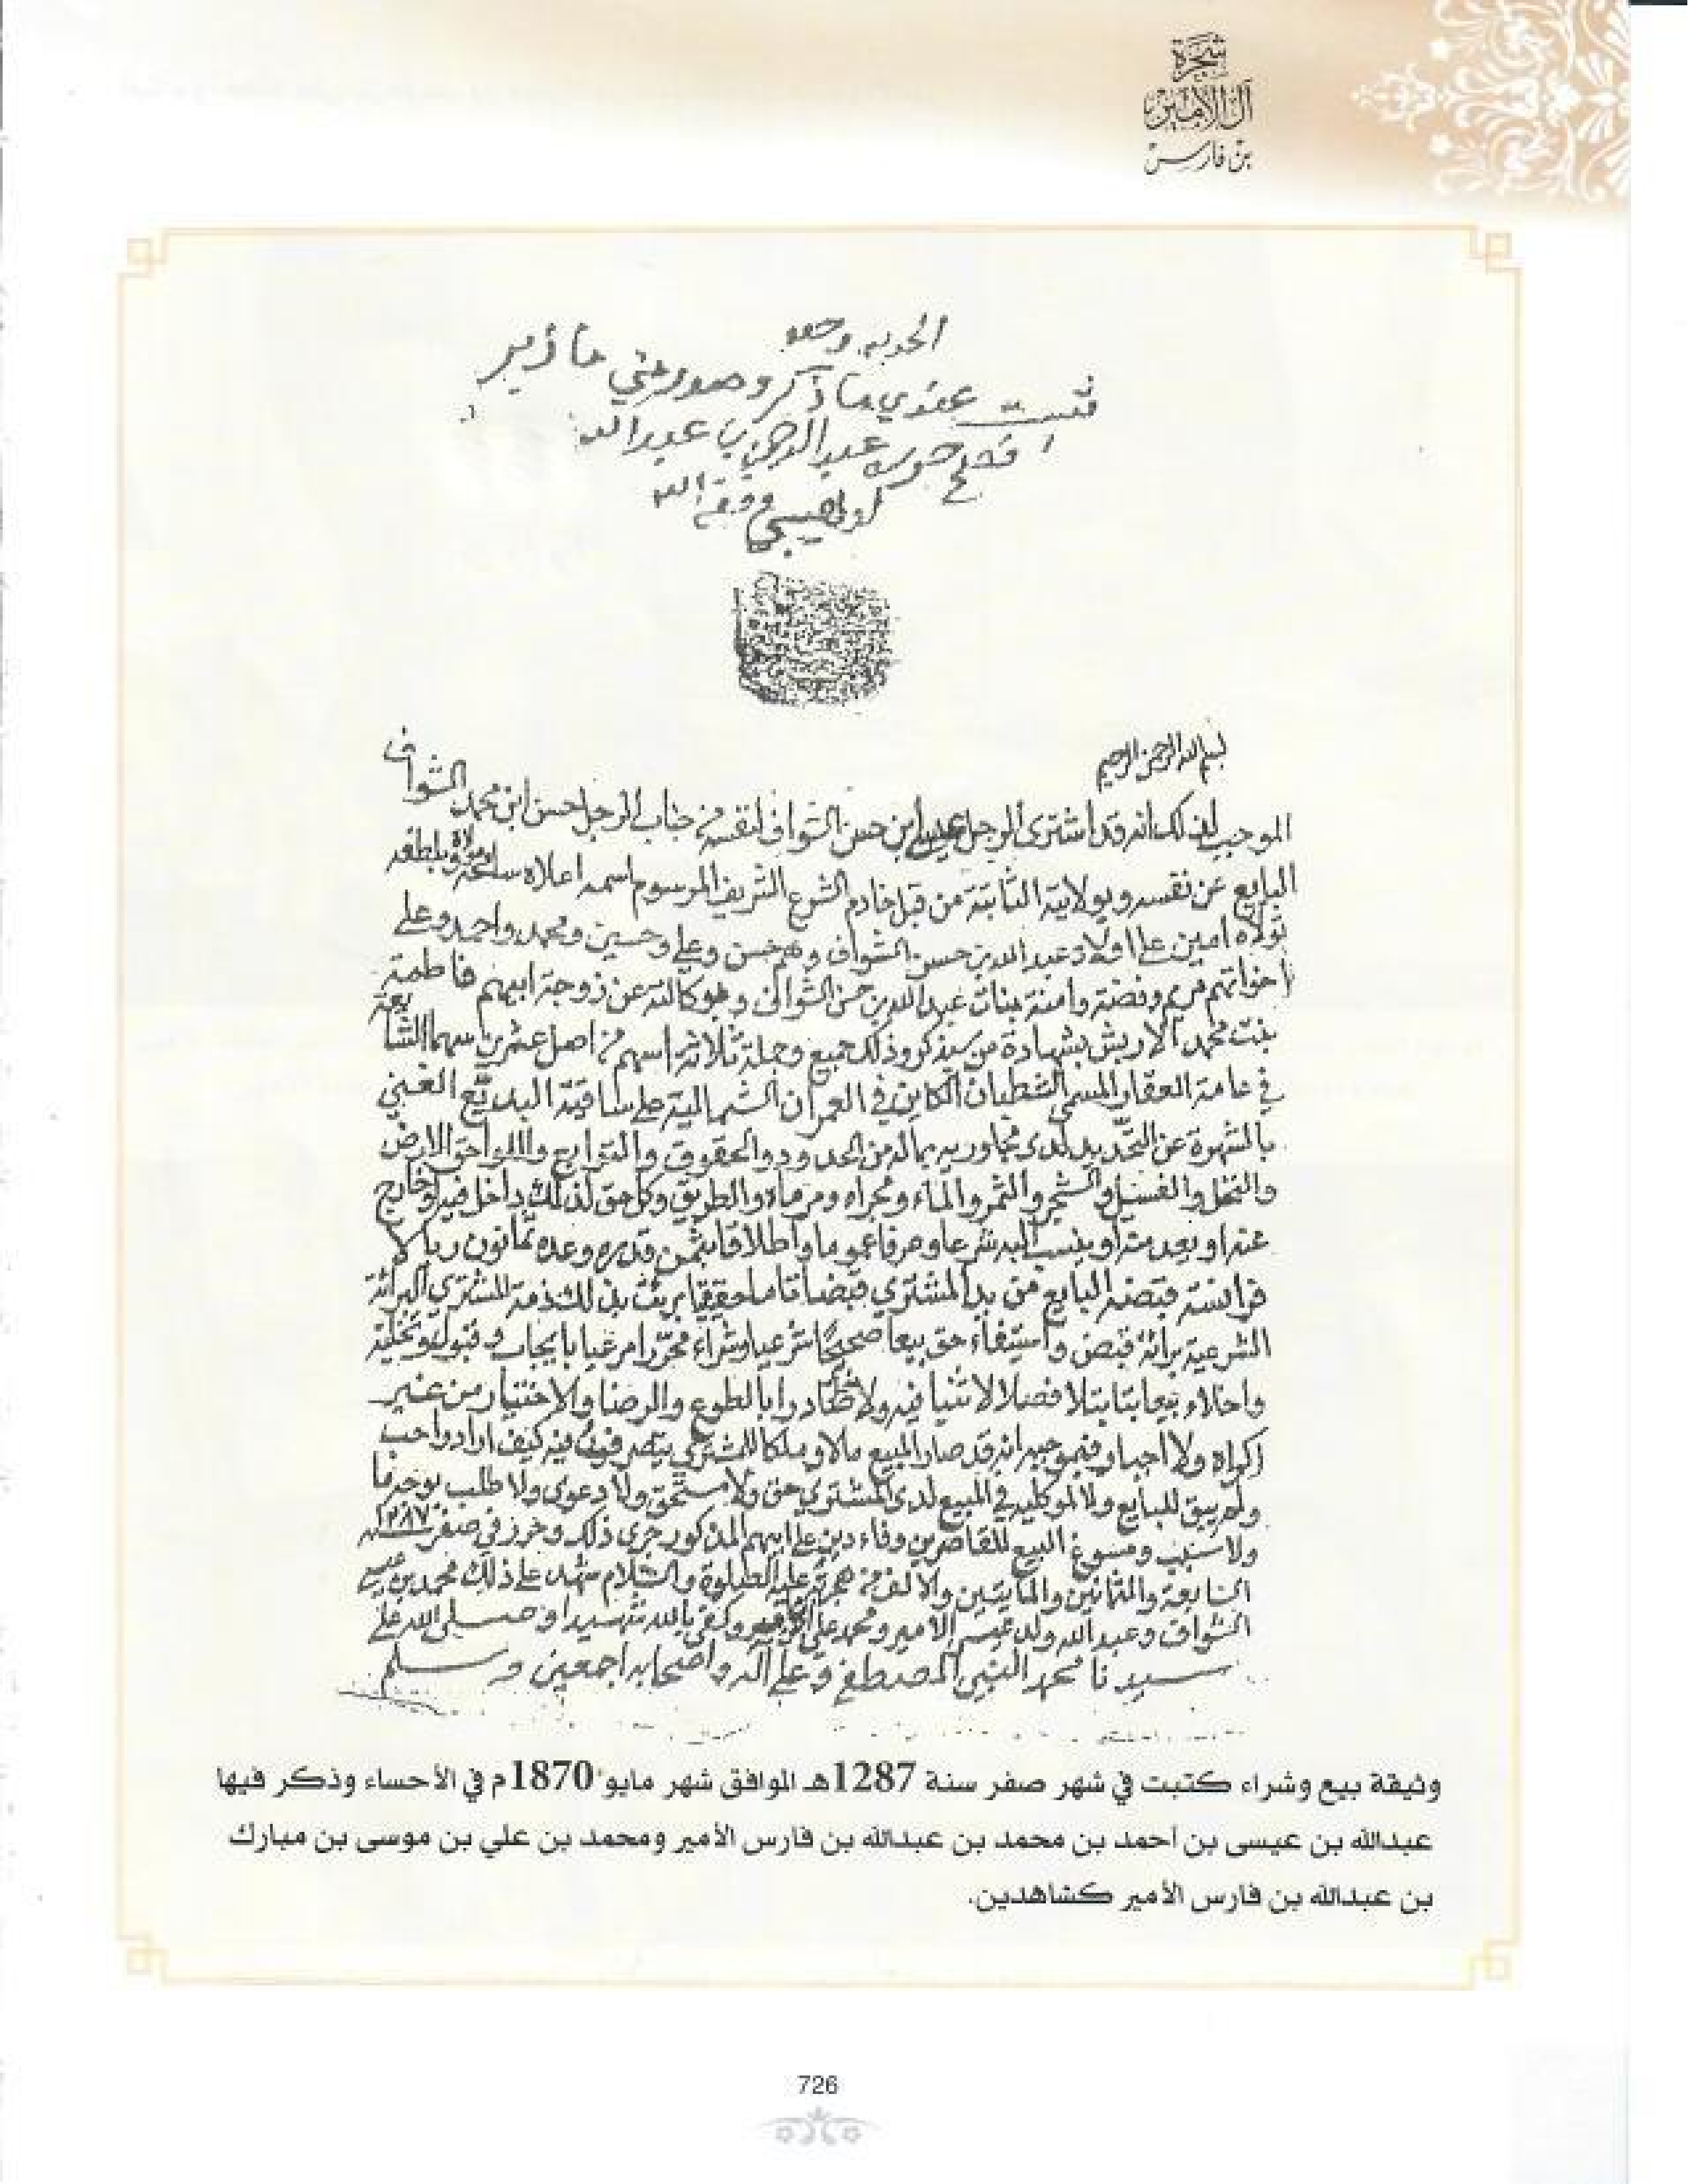 شجرة
آل الأمير
بن فارس
الحمد لله وحده
ثبت عندي ما ذكر وصدر مني ما زبر
عبد الرحمن بن عبد الله
الوهيبي وفقه الله
بسم الله الرحمن الرحيم
الموجب لذلك انه قد اشترى الرجل عيسى ابن حسن الشواف لنفسه من جناب الرجل حسن ابن محمد الشواف
البايع عن نفسه وبولايته الثابتة من قبل خادم الشرع الشريف المرسوم اسمه اعلاه
تولاه امين على اولاد عبد الله بن حسن الشواف وهم حسن وعلي وحسين ومحمد واحمد وعلى
اخواتهم مريم وفضة وامنة بنات عبد الله بن حسن الشواف وبوكالته عن زوجة ابيهم فاطمة
بنت محمد الاربش بشهادة من سيذكر وذلك جميع وجملة ثلاثة اسهم من اصل عشرين سهما الشايعة
في عامة العقار المسمى الشطيان الكاين في العمران الشمالية على ساقية البديع الغني
بالشهرة عن التحديد لدى مجاوريه بماله من الحدود والحقوق والتوابع واللواحق الارض
والنخل والغسيل والشجر والثمر والماء ومجراه ومرماه والطريق وكل حق لذلك داخل فيه او خارج
عنه او يعد منه او ينسب اليه شرعا وعرفا عموما واطلاقا بثمن قدره وعده ثمانون ريالا
فرانسة قبضه البايع من يد المشتري قبضا تاما حقيقيا برئت بذلك ذمة المشتري البرائة
الشرعية برائة قبض واستيفاء حق بيعا صحيحا شرعيا وشراء محررا مرعيا بايجاب وقبول وتخلية
واخلاء بيعا بتا بتلا فصلا لا ثنيا فيه ولا بالطوع والرضا والاختيار من غير
اكراه ولا اجبار فبموجبه انه قد صار المبيع مالا وملكا للمشتري يتصرف فيه كيف اراد واحب
ولم يبق للبايع ولا لموكليه في المبيع لدى المشتري حق ولا مستحق ولا دعوى ولا طلب بوجه ما
ولا سبب ومسوغ البيع للقاصرين وفاء دين على ابيهم المذكور جرى ذلك وحرر في صفر ١٢٨٧
السابعة والثمانين والمايتين والالف من هجرته عليه الصلوة والسلام شهد على ذلك محمد بن عيسى
الشواف وعبد الله ولد عيسى الامير ومحمد علي الامير وكفى بالله شهيدا وصلى الله على
سيدنا محمد النبي المصطفى وعلى آله واصحابه اجمعين وسلم
وثيقة بيع وشراء كتبت في شهر صفر سنة 1287هـ الموافق شهر مايو 1870م في الأحساء وذكر فيها
عبدالله بن عيسى بن أحمد بن محمد بن عبدالله بن فارس الأمير ومحمد بن علي بن موسى بن مبارك
بن عبدالله بن فارس الأمير كشاهدين.
726